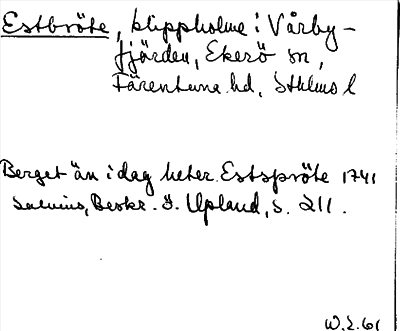 Estbröte, klippholme i Vårby-
fjärden, Ekerö sn,
Färentuna hd, Sthlms l
Berget än i dag heter Estspröte 1741
Salvius, Beskr. ö. Upland, s. 211.
W.Z. 61